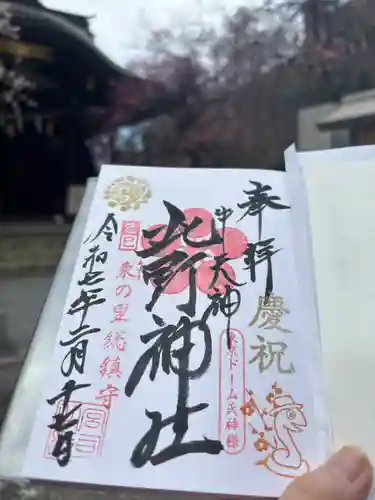 奉拝
慶祝
牛天神
北野神社
東京ドーム氏神様
乙巳
東の里総鎮守
令和七年二月十七日
宮司